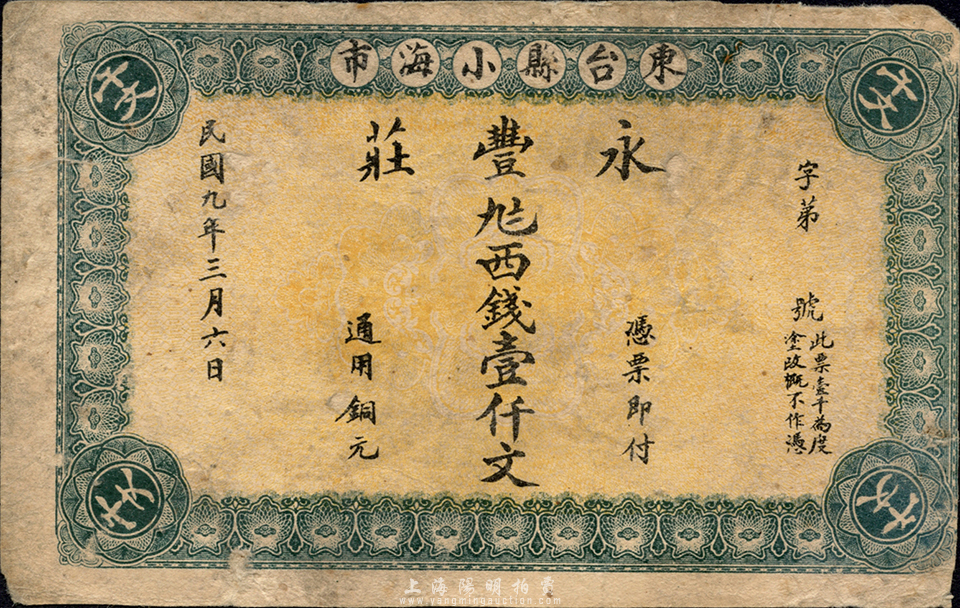 東台縣小海市
字第
號
此票壹千為度
塗改概不作憑
永豐莊
憑票即付
九西錢壹仟文
通用銅元
民國九年三月六日
上海陽明拍賣
www.yangmingauction.com